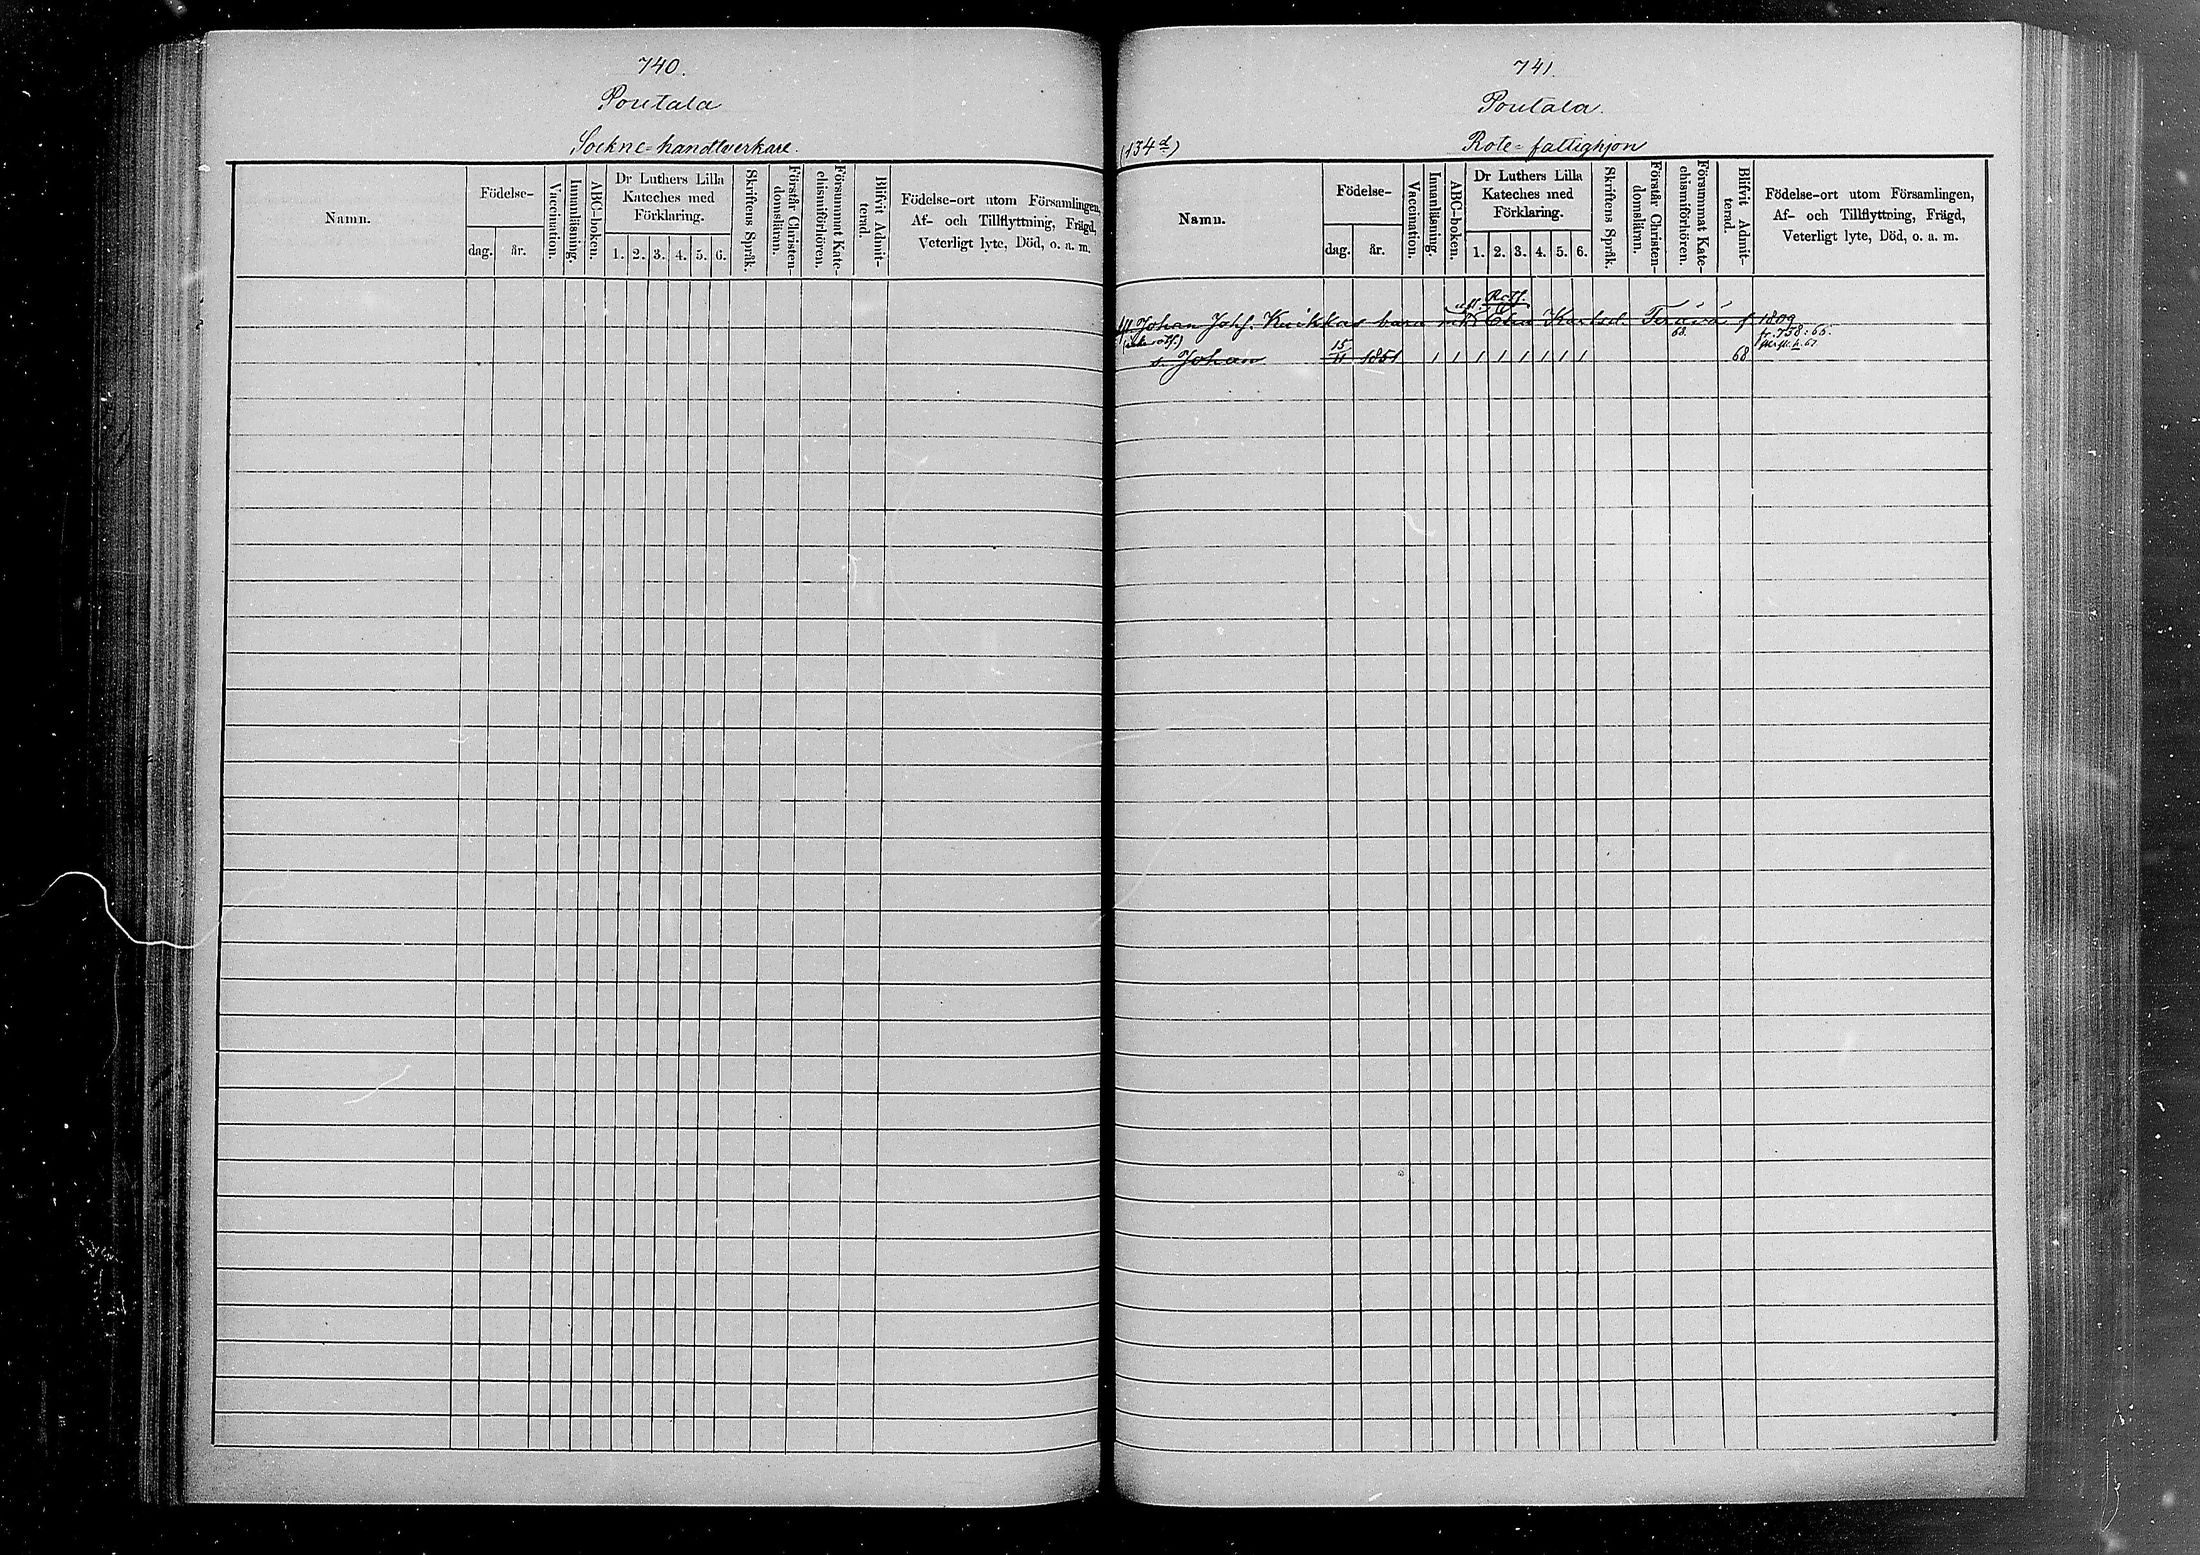 740.
Poutala
Sockne-handtverkare.
Namn.
Födelse-
dag. år.
Vaccination.
Innanläsning.
ABC-boken.
Dr Luthers Lilla
Kateches med
Förklaring.
1. 2. 3. 4. 5. 6.
Skriftens Språk.
Förstår Christen-
domsläran.
Försummat Kate-
chismiförhören.
Blifvit Admit-
terad.
Födelse-ort utom Församlingen,
Af- och Tillflyttning, Frägd,
Veterligt lyte, Död, o. a. m.
741.
Poutala.
(134 d)
Rote-fattighjon
Namn.
Födelse-
dag. år.
Vaccination.
Innanläsning.
ABC-boken.
Dr Luthers Lilla
Kateches med
Förklaring.
1. 2. 3. 4. 5. 6.
Skriftens Språk.
Förstår Christen-
domsläran.
Försummat Kate-
chismiförhören.
Blifvit Admit-
terad.
Födelse-ort utom Församlingen,
Af- och Tillflyttning, Frägd,
Veterligt lyte, Död, o. a. m.
Rotf.
Johan Johs. barn Karlsd. f 1809
68. fr. 758: 66.
s. Johan 15/11 1851 68